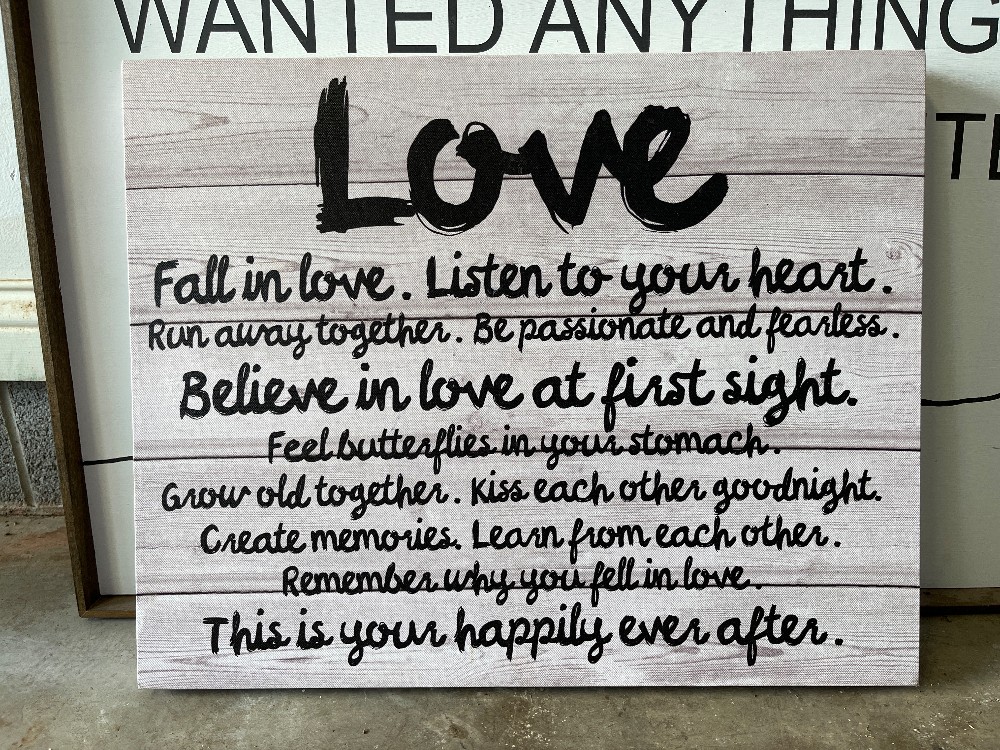 WANTED ANYTHING
TE
Love
Fall in love. Listen to your heart.
Run away together. Be passionate and fearless.
Believe in love at first sight.
Feel butterflies in your stomach.
Grow old together. Kiss each other goodnight.
Create memories. Learn from each other.
Remember why you fell in love.
This is your happily ever after.